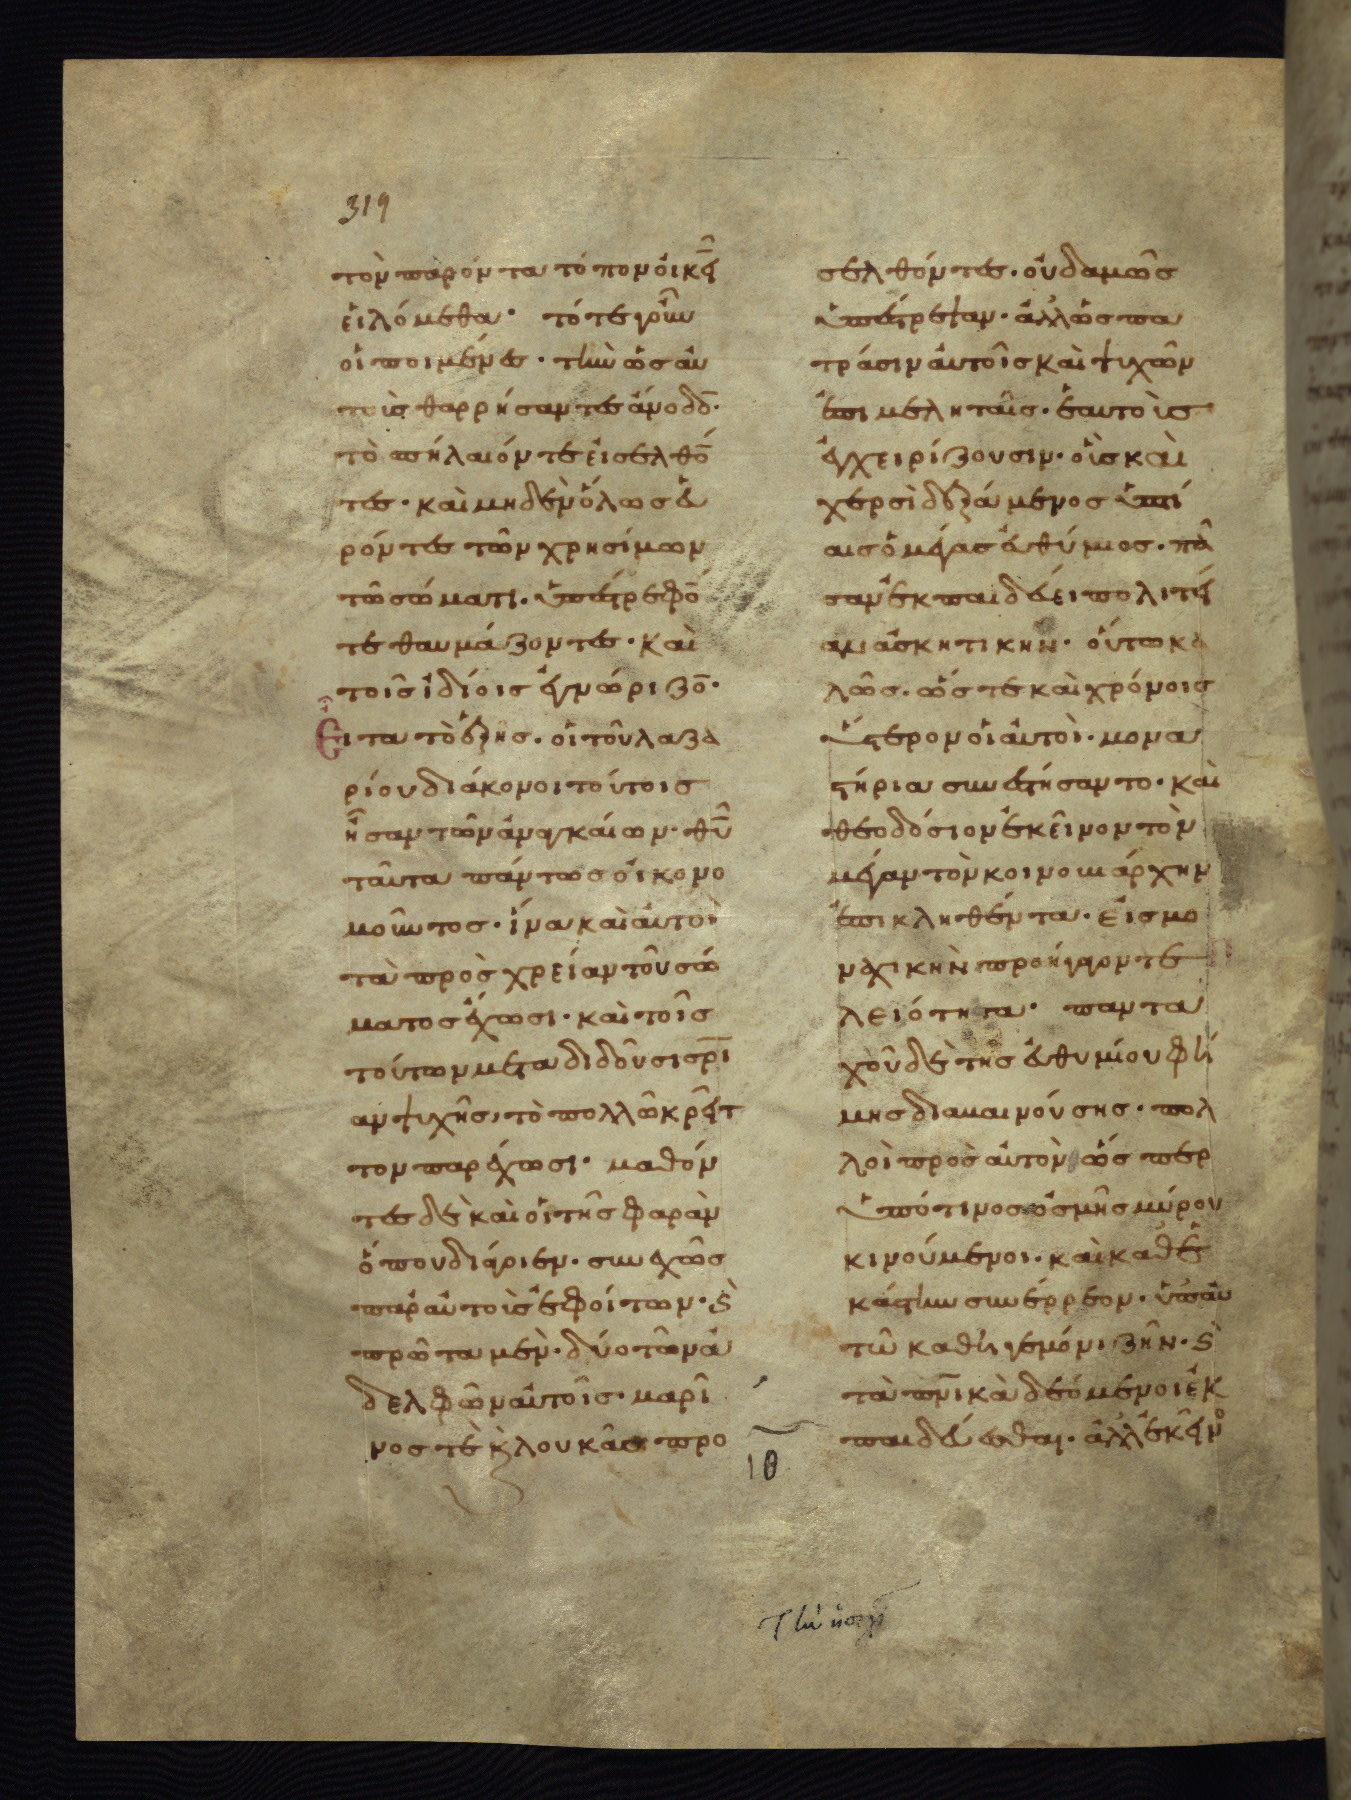 319
τὸν παρόντα τόπον οἰκεῖ
εἱλόμεθα· τότε γοῦν
οἱ ποιμένες· τὴν ὡς αὐ
τοὺς θαρρήσαντες ἄνοδο·
τὸ σπήλαιόν τε εἰσελθό
τες· καὶ μηδὲν ὅλως εὑ
ρόντες τῶν χρησίμων
τῷ σώματι· ὑπέστρεφό
τε θαυμάζοντες· καὶ
τοῖς ἰδίοις ἐγνώριζο·
Εἶτα τὸ ἑξῆς· οἱ τοῦ λαζα
ρίου διάκονοι τούτοις
ἦσαν τῶν ἀναγκαίων· θῡ
ταῦτα πάντως οἰκονο
μοῦντος· ἵνα καὶ αὐτοὶ
τὰ πρὸς χρείαν τοῦ σώ
ματος ἔχωσι· καὶ τοῖς
τούτων μεταδιδοῦσι σρ̄ι
αν ψυχῆς, τὸ πολλῷ κρεῖτ
τον παρέχωσι· μαθόν
τες δὲ καὶ οἱ τῆς φαρὰν
ὅπου διάγοιεν· συνεχῶς
παρ' αὐτοὺς ἐφοίτων· καὶ
πρῶτα μὲν· δύο τῶν ἀ
δελφῶν αὐτοῖς· μαρῖ
νος τὲ καὶ λουκᾶς προ
σελθόντες· οὐδαμῶς
ὑπέστρεψαν· ἀλλ' ὡς πα
τράσιν αὐτοῖς καὶ ψυχῶν
ἐπιμεληταῖς· ἑαυτοὺς
ἐγχειρίζουσιν· οὓς καὶ
χερσὶ δεξάμενος ὑπτί
αις ὁ μέγας εὐθύμιος· πᾶ
σαν ἐκπαιδεύει πολιτεί
αν ἀσκητικήν· οὕτω κα
λῶς· ὥστε καὶ χρόνοις
ὕστερον οἱ αὐτοὶ· μονα
στήρια συνεστήσαντο· καὶ
θεοδόσιον ἐκεῖνον τὸν
μέγαν τὸν κοινοιάρχην
ἐπικληθέντα· εἰς μο
ναχικὴν προήγαγον τε
λειότητα· παντα
χοῦ δὲ τῆς εὐθυμίου φή
μης διαβαινούσης· πολ
λοὶ πρὸς αὐτὸν ὥσπερ
ὑπό τινος ὀσμῆς μύρου
κινούμενοι· καὶ καθ' ἑ
κάστην συνέρρεον· ὑπ' αὐ
τῷ καθηγεμόνι ζῆν· καὶ
τὰ πνικὰ δεόμενοι ἐκ
παιδεύεσθαι· ἀλλ' ἐκεῖνο
ιθ